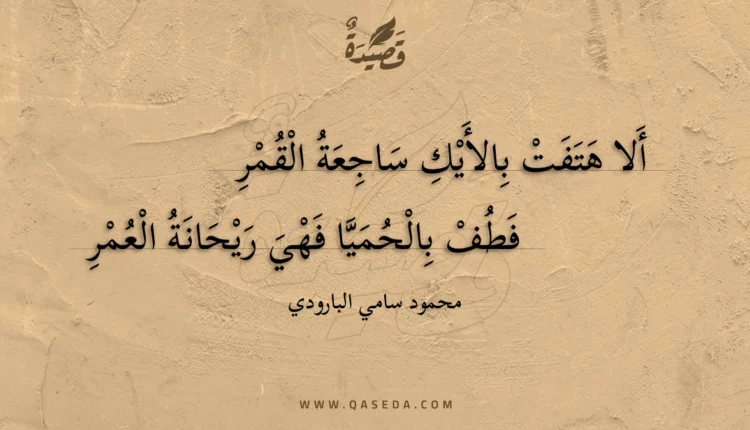 قَصِيدَةٌ
أَلا هَتَفَتْ بِالأَيْكِ سَاجِعَةُ الْقُمْرِ
فَطُفْ بِالْحُمَيَّا فَهْيَ رَيْحَانَةُ الْعُمْرِ
محمود سامي البارودي
WWW.QASEDA.COM